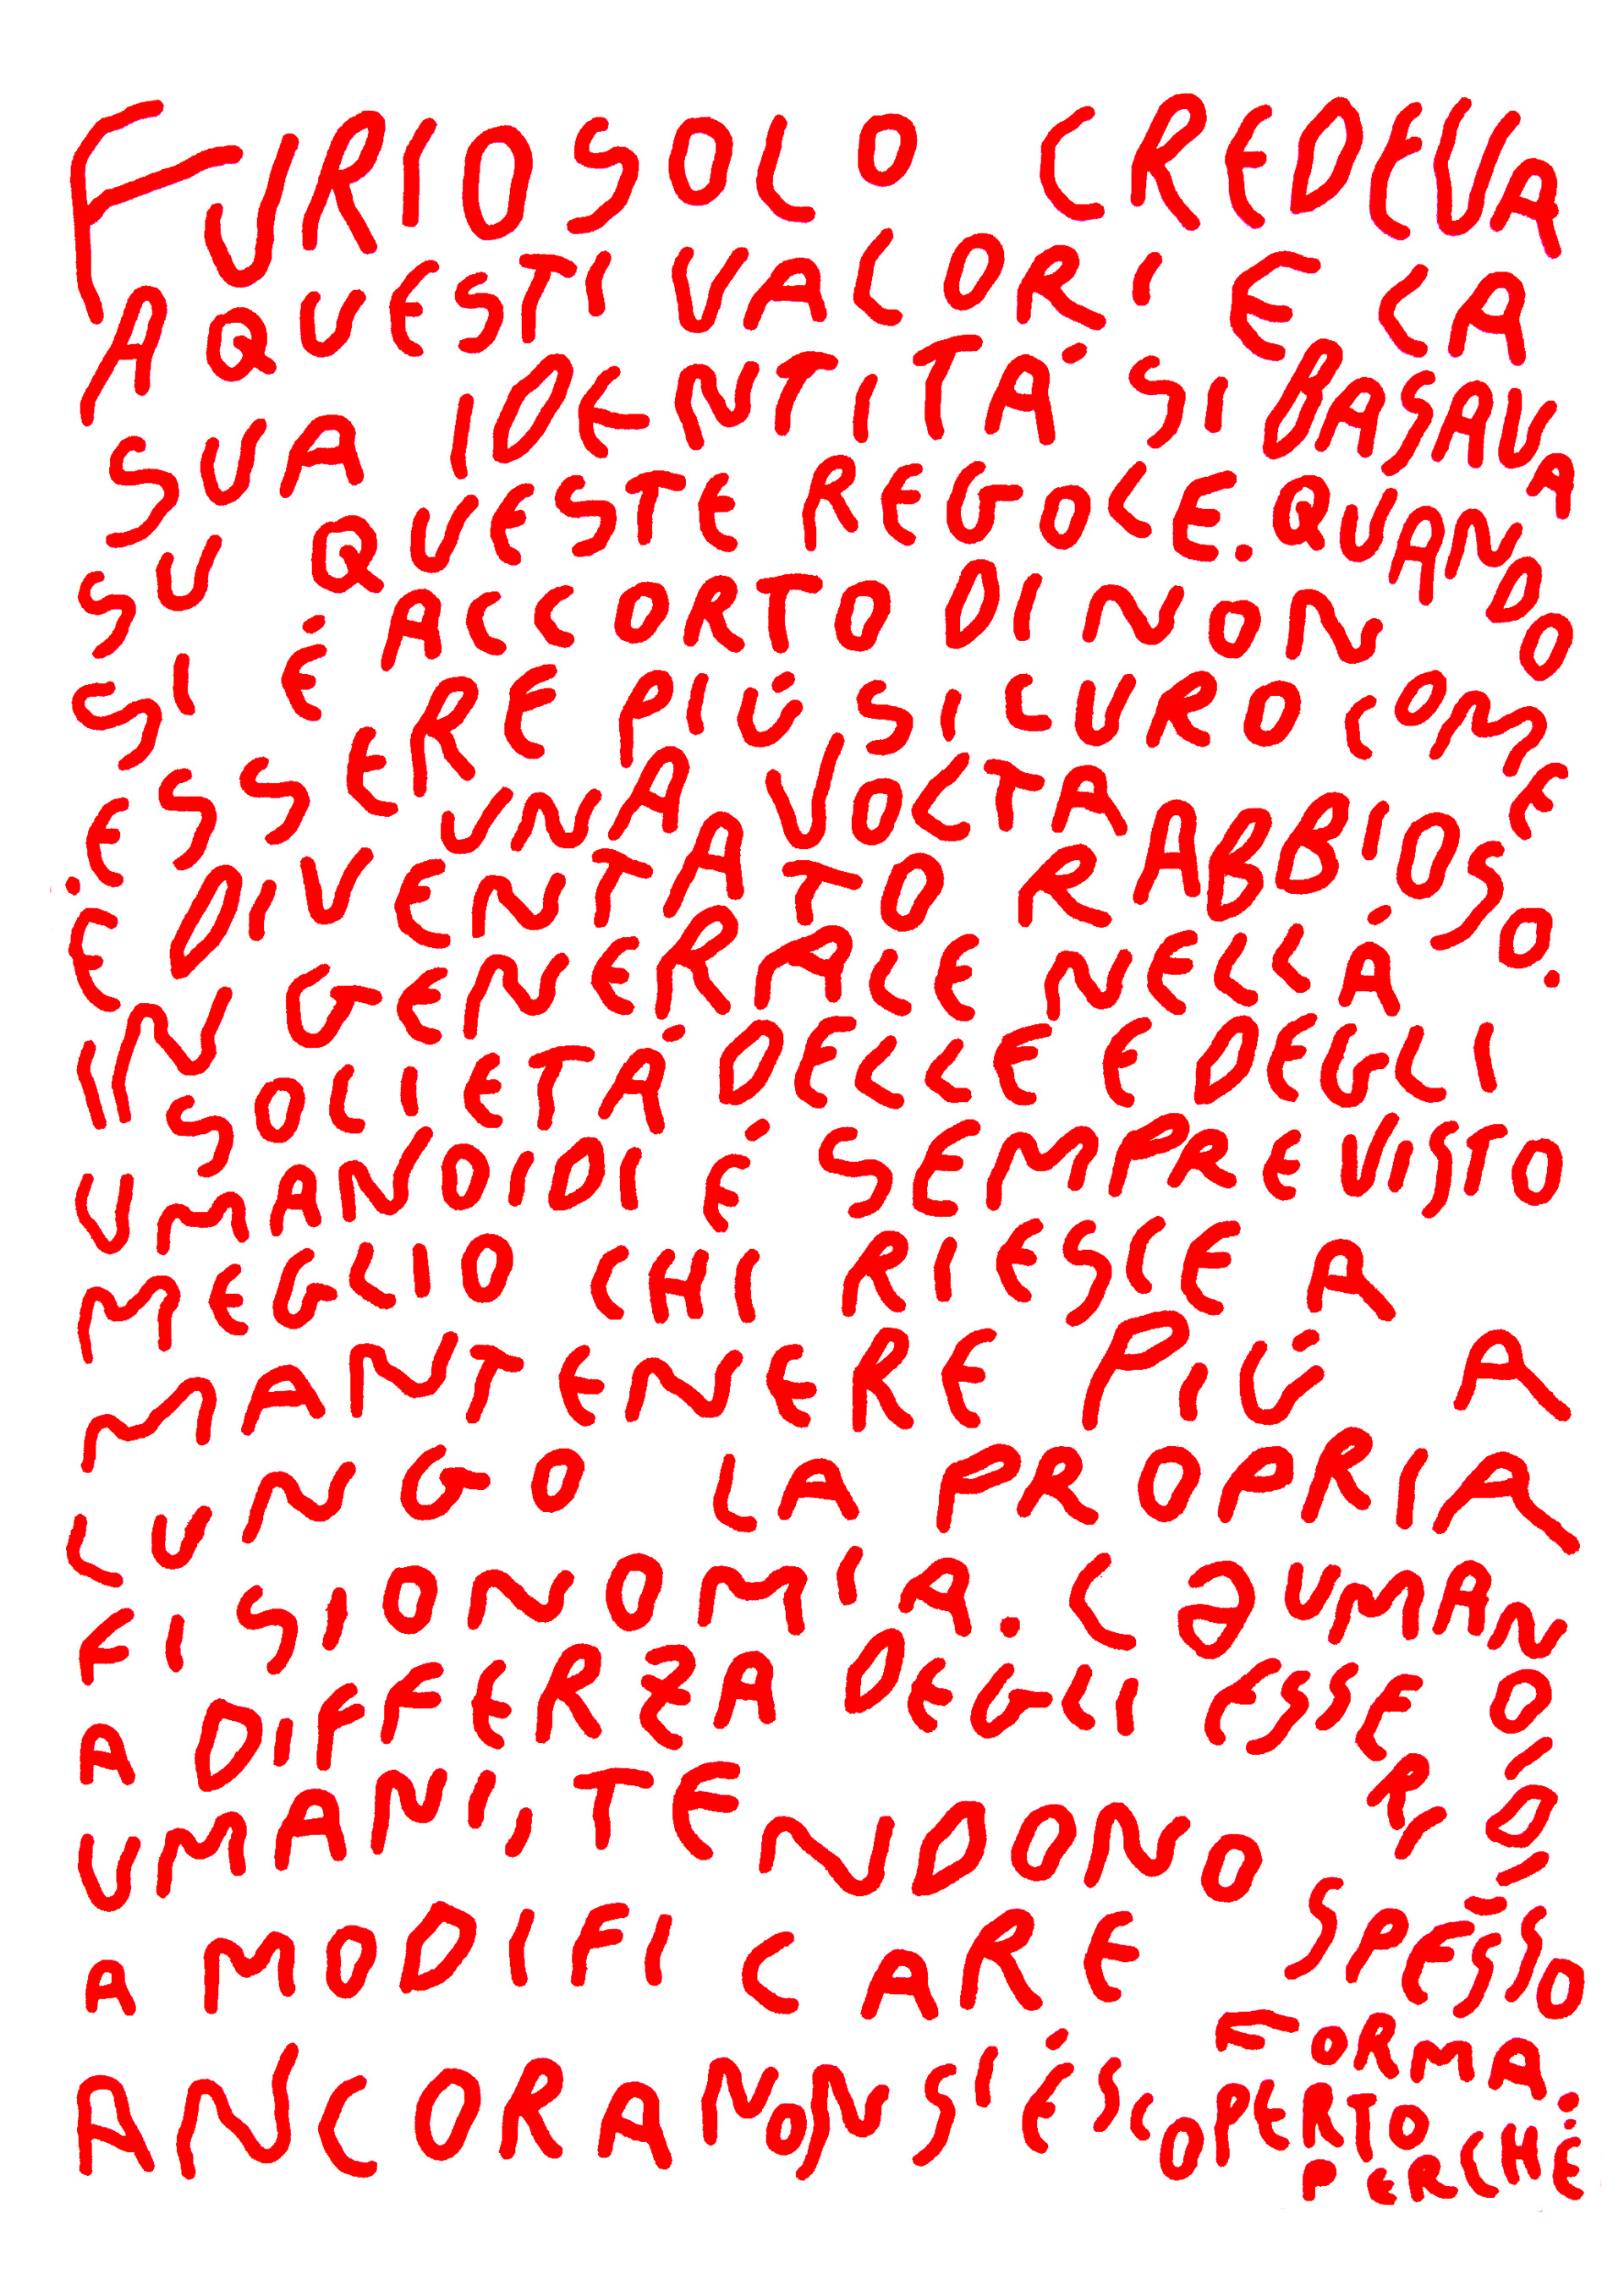 FURIO SOLO CREDEVA
A QUESTI VALORI E LA
SUA IDENTITÀ SI BASAVA
SU QUESTE REGOLE. QUANDO
SI È ACCORTO DI NON
ESSERE PIÙ SICURO COME
UNA VOLTA
È DIVENTATO RABBIOSO.
IN GENERALE NELLÁ
SOCIETÀ DELLE E DEGLI
UMANOIDI È SEMPRE VISTO
MEGLIO CHI RIESCE A
MANTENERE PIÙ A
LUNGO LA PROPRIA
FISIONOMIA. LƏ UMANOIDI,
A DIFFERZA DEGLI ESSERI
UMANI, TENDONO SPESSO
A MODIFICARE FORMA.
ANCORA NON SI È SCOPERTO
PERCHÉ